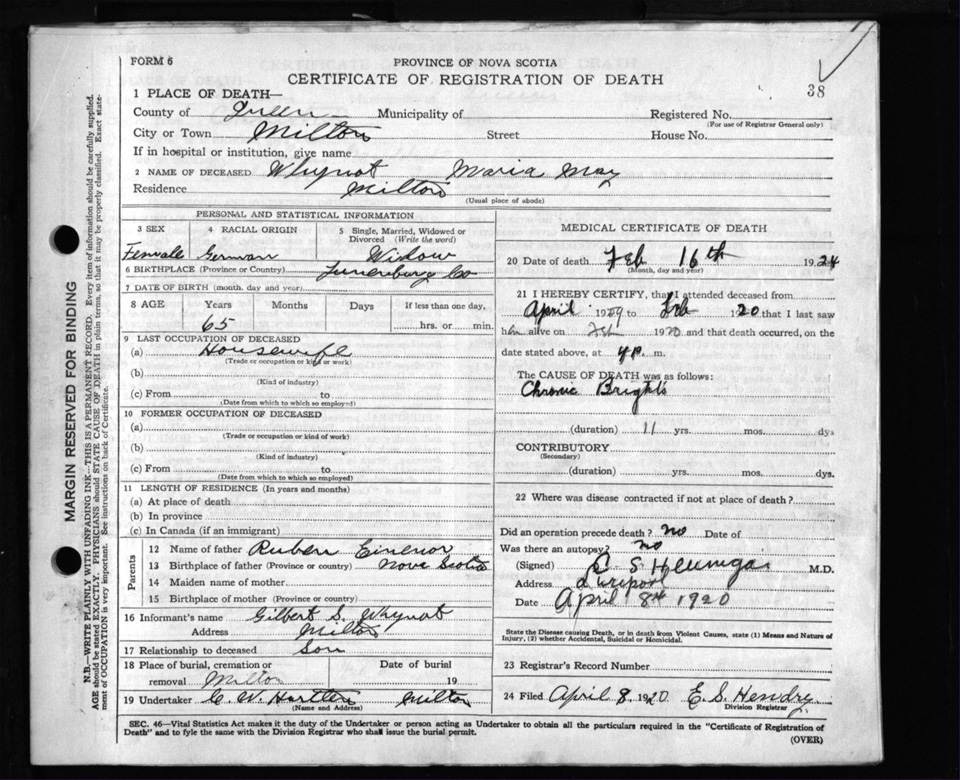 FORM 6
PROVINCE OF NOVA SCOTIA
CERTIFICATE OF REGISTRATION OF DEATH
38
1 PLACE OF DEATH—
County of Queen Municipality of Registered No.
(For use of Registrar General only)
City or Town Milton Street House No.
If in hospital or institution, give name
2 NAME OF DECEASED Whynot Maria May
Residence Milton
(Usual place of abode)
PERSONAL AND STATISTICAL INFORMATION
3 SEX 4 RACIAL ORIGIN 5 Single, Married, Widowed or Divorced (Write the word)
Female German Widow
6 BIRTHPLACE (Province or Country) Lunenburg Co
7 DATE OF BIRTH (month, day and year)
8 AGE Years Months Days If less than one day,
65 hrs. or min.
9 LAST OCCUPATION OF DECEASED
(a) Housewife
(Trade or occupation or kind or work)
(b)
(Kind of industry)
(c) From to
(Date from which to which so employed)
10 FORMER OCCUPATION OF DECEASED
(a)
(Trade or occupation or kind of work)
(b)
(Kind of industry)
(c) From to
(Date from which to which so employed)
11 LENGTH OF RESIDENCE (In years and months)
(a) At place of death
(b) In province
(c) In Canada (if an immigrant)
Parents
12 Name of father Ruben
13 Birthplace of father (Province or country) Nova Scotia
14 Maiden name of mother
15 Birthplace of mother (Province or country)
16 Informant's name Gilbert S. Whynot
Address Milton
17 Relationship to deceased Son
18 Place of burial, cremation or Date of burial
removal Milton 19
19 Undertaker C. W. Milton
(Name and Address)
MEDICAL CERTIFICATE OF DEATH
20 Date of death Feb 16th 192
(Month, day and year)
21 I HEREBY CERTIFY, that I attended deceased from
April 19 to Feb 1920 that I last saw
alive on 1920 and that death occurred, on the
date stated above, at 4 p. m.
The CAUSE OF DEATH was as follows:
Chronic Brights
(duration) 11 yrs. mos. dys
CONTRIBUTORY
(Secondary)
(duration) yrs. mos. dys.
22 Where was disease contracted if not at place of death?
Did an operation precede death? no Date of
Was there an autopsy? no
(Signed) S M.D.
Address
Date April 8th 1920
State the Disease causing Death, or in death from Violent Causes, state (1) Means and Nature of
Injury, (2) whether Accidental, Suicidal or Homicidal.
23 Registrar's Record Number
24 Filed April 8, 1920 E. S. Hendry
Division Registrar
SEC. 46—Vital Statistics Act makes it the duty of the Undertaker or person acting as Undertaker to obtain all the particulars required in the "Certificate of Registration of
Death" and to fyle the same with the Division Registrar who shall issue the burial permit.
(OVER)
MARGIN RESERVED FOR BINDING
N.B.—WRITE PLAINLY WITH UNFADING INK—THIS IS A PERMANENT RECORD. Every item of information should be carefully supplied.
AGE should be stated EXACTLY. PHYSICIANS should STATE CAUSE OF DEATH in plain terms, so that it may be properly classified. Exact state-
ment of OCCUPATION is very important. See instructions on back of Certificate.